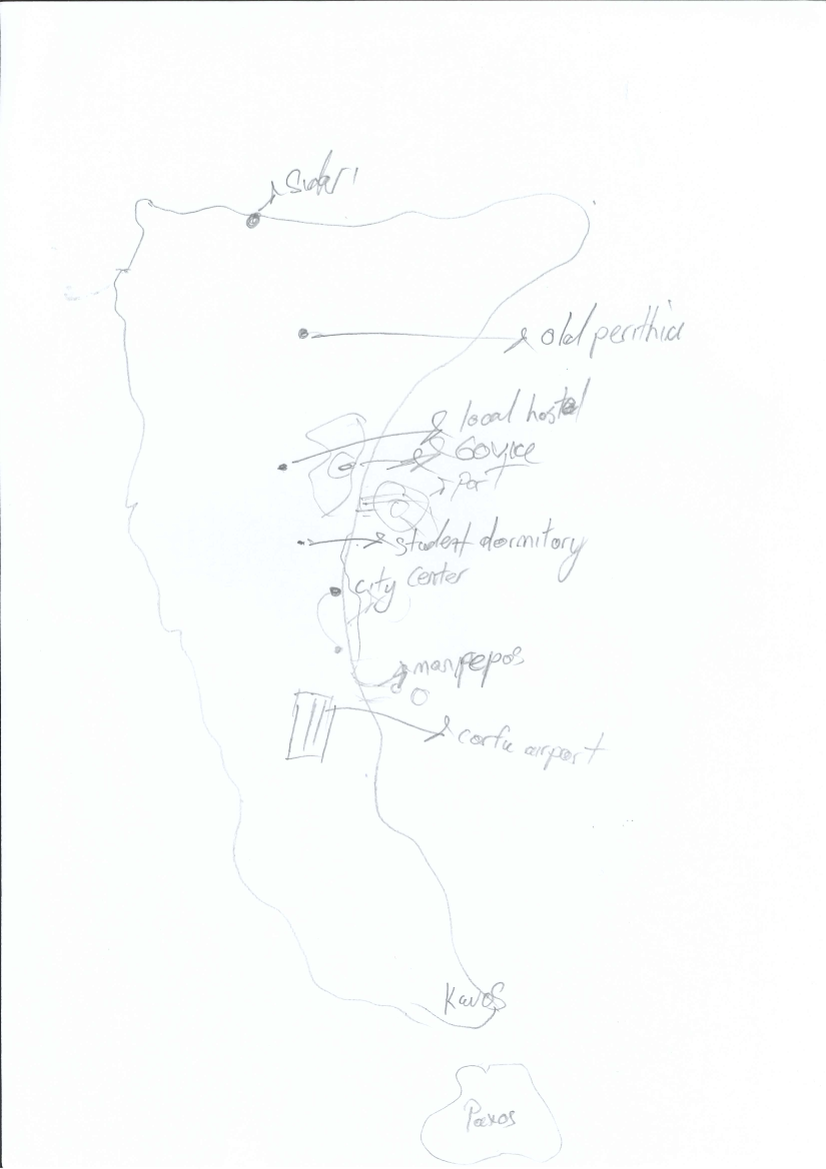 Sidari
old perithia
local hostel
Port
student dormitory
city center
corfu airport
Kavos
Paxos